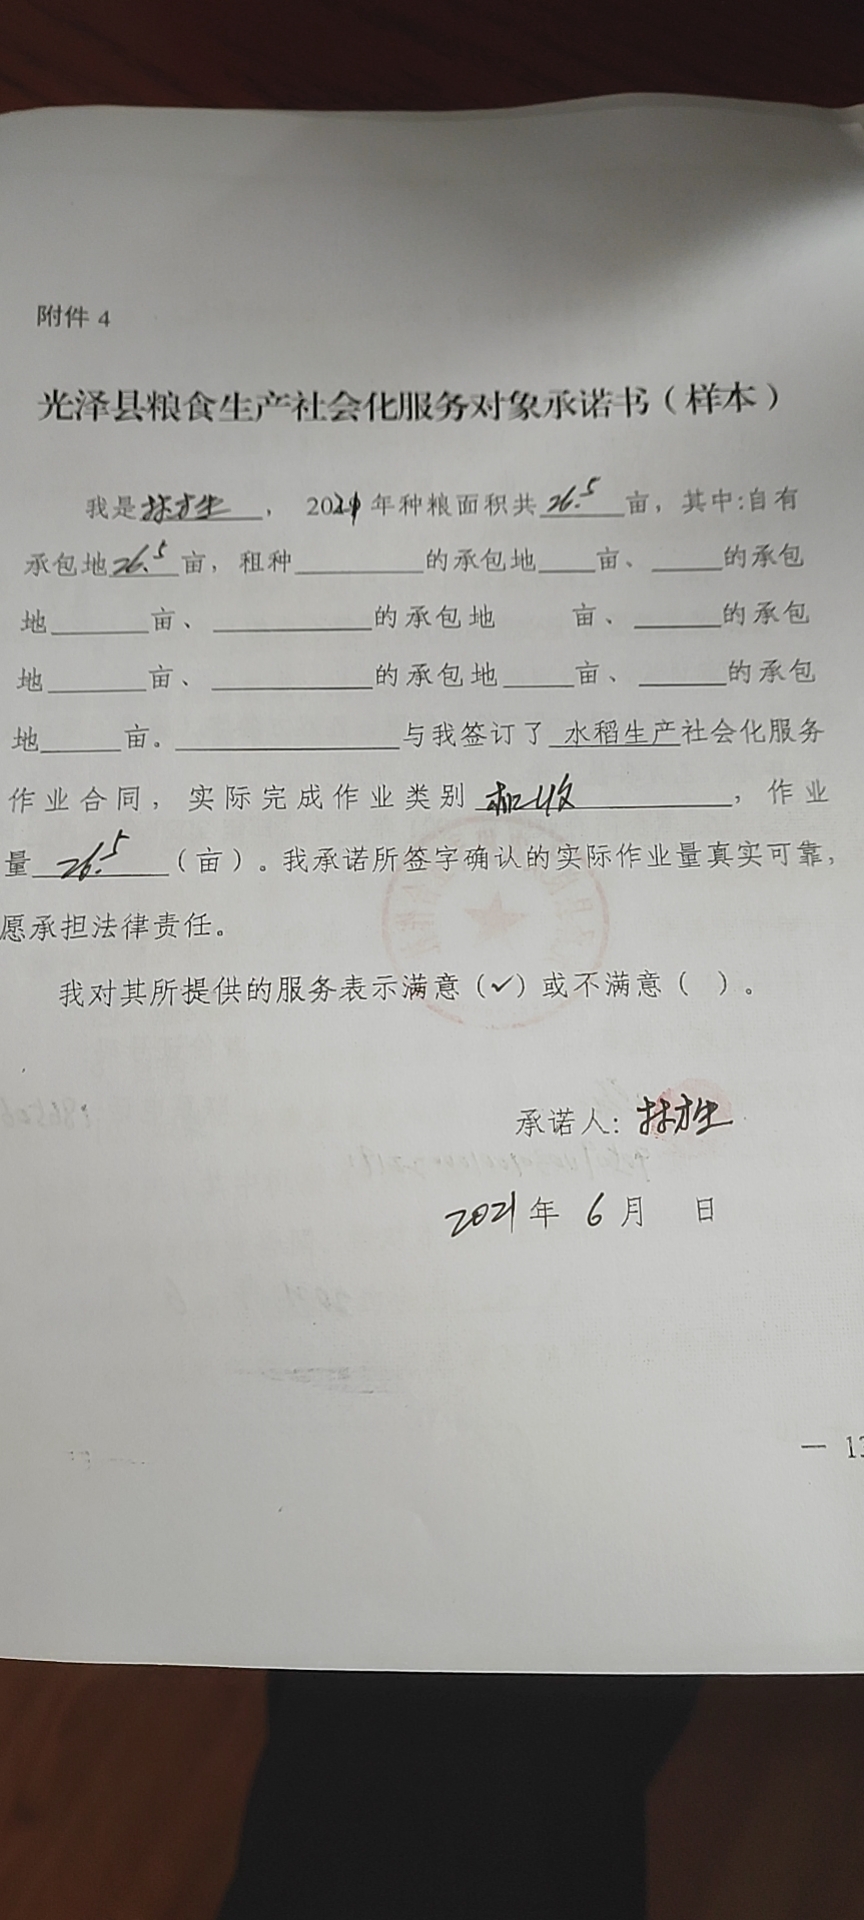 附件 4
光泽县粮食生产社会化服务对象承诺书（样本）
我是林才生，2021年种粮面积共26.5亩，其中:自有
承包地26.5亩，租种______的承包地____亩、____的承包
地______亩、______的承包地 亩、____的承包
地______亩、______的承包地____亩、____的承包
地______亩。______与我签订了 水稻生产社会化服务
作业合同，实际完成作业类别 机收，作业
量 26.5（亩）。我承诺所签字确认的实际作业量真实可靠，
愿承担法律责任。
我对其所提供的服务表示满意（✓）或不满意（ ）。
承诺人：林才生
2021年 6月 日
— 13